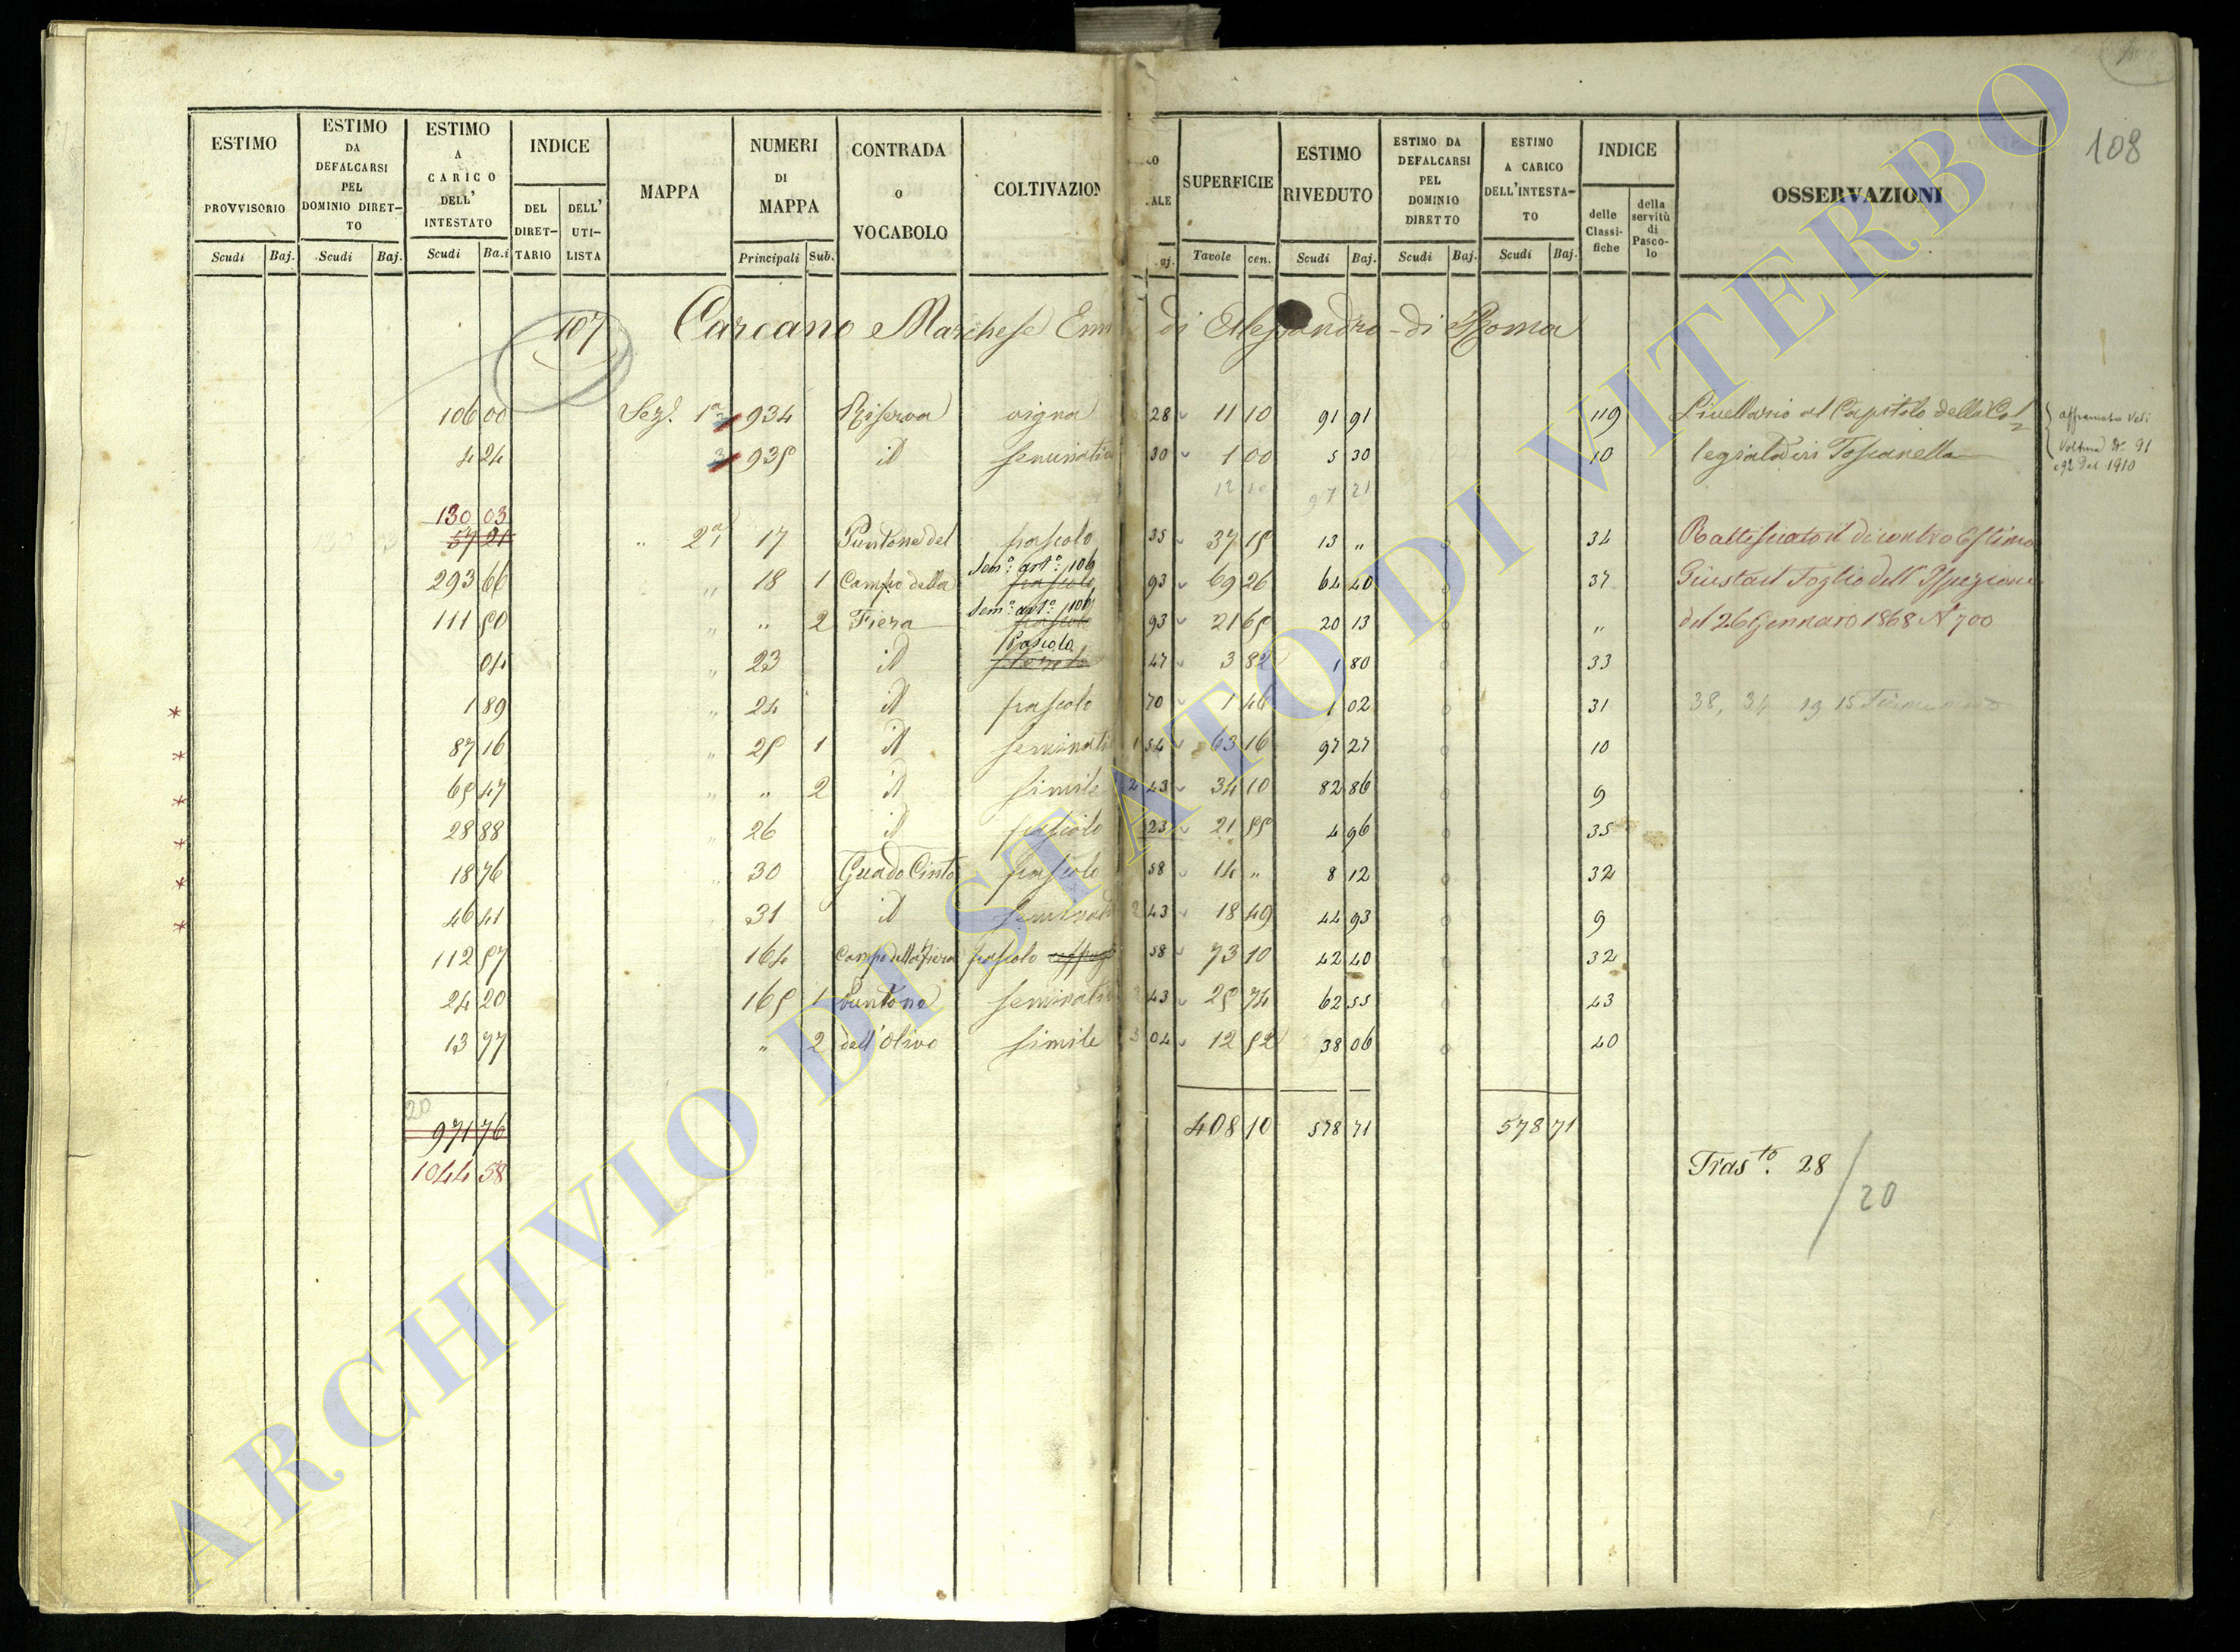 108
ESTIMO PROVVISORIO Scudi Baj.
ESTIMO DA DEFALCARSI PEL DOMINIO DIRET-TO Scudi Baj.
ESTIMO A CARICO DELL' INTESTATO Scudi Ba.i
INDICE DEL DIRET-TARIO DELL' UTI-LISTA
MAPPA
NUMERI DI MAPPA Principali Sub.
CONTRADA o VOCABOLO
COLTIVAZION
ALE
SUPERFICIE Tavole cen.
ESTIMO RIVEDUTO Scudi Baj.
ESTIMO DA DEFALCARSI PEL DOMINIO DIRETTO Scudi Baj.
ESTIMO A CARICO DELL'INTESTA-TO Scudi Baj.
INDICE delle Classi-fiche della servitù di Pasco-lo
OSSERVAZIONI
107 Carcano Marchese di Alessandro di Roma
106 00 Sez. 1ª 934 Riserva vigna 28 11 10 91 91 119 Livellario al Capitolo della Col
4 24 3 935 id seminativ 30 1 00 5 30 10 legiata di Toscanella
affrancato Vedi
Voltura N. 91
e 92 del 1910
12 10 97 21
130 03
57 21 " 2ª 17 Puntone del pascolo 35 37 15 13 " 34 Rattificato il di contro Estimo
Sem.º art.º 106
293 66 " 18 1 Campo della pascolo 93 69 26 64 40 37 Giusta il Foglio dell' Ispezione
Sem.º art.º 106
111 50 " " 2 Fiera pascolo 93 21 65 20 13 " del 26 Gennaro 1868 N 700
Pascolo
04 " 23 id 47 3 82 1 80 33
* 1 89 " 24 id pascolo 70 1 46 1 02 31 38, 34
* 87 16 " 25 1 id seminativ 1 54 63 16 97 27 10
* 65 47 " " 2 id simile 2 43 34 10 82 86 9
* 28 88 " 26 id pascolo 23 21 55 4 96 35
* 18 76 " 30 Guado Cinto pascolo 58 14 " 8 12 32
* 46 41 31 id seminativ 2 43 18 49 44 93 9
112 57 164 Campo della Fiera pascolo 58 73 10 42 40 32
24 20 165 1 Puntone seminativ 2 43 25 74 62 55 43
13 77 " 2 dell'Olivo simile 3 04 12 52 38 06 40
20
971 76 408 10 578 71 578 71
1044 58 Tras.to 28
20
ARCHIVIO DI STATO DI VITERBO